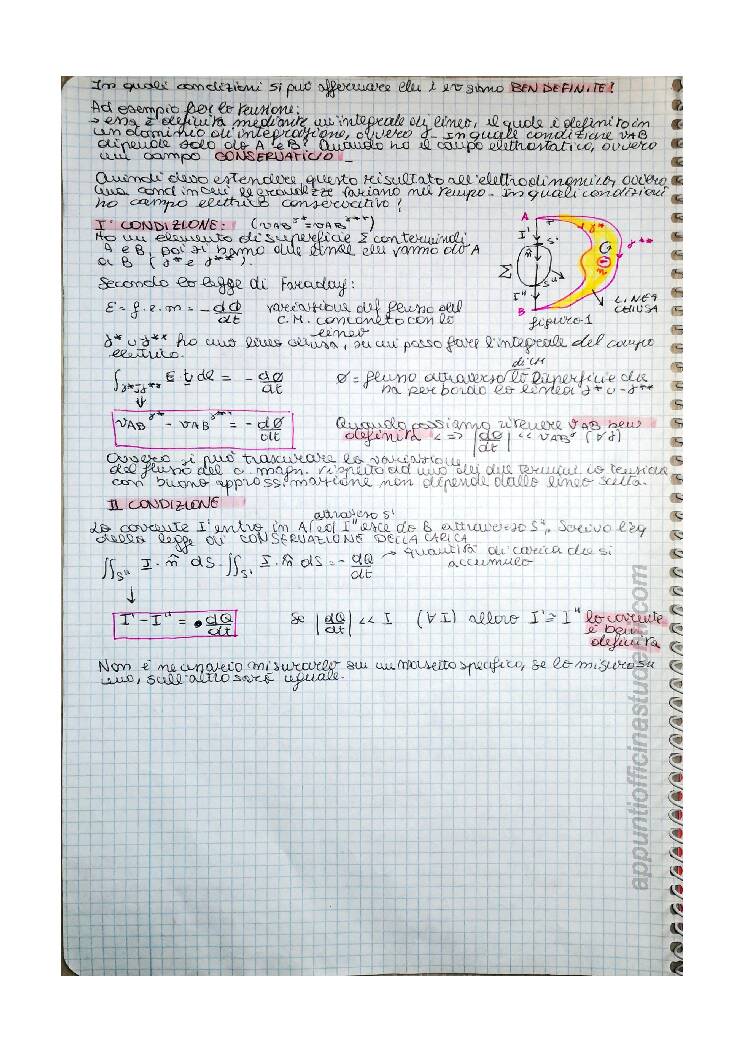 In quali condizioni si può affermare che i e v siano BEN DEFINITE?
Ad esempio per la tensione:
→ essa è definita mediante un integrale di linea, il quale è definito in
un dominio di integrazione, ovvero γ. In quale condizione VAB
dipende solo da A e B? Quando ho il campo elettrostatico, ovvero
un campo CONSERVATIVO
Quindi devo estendere questo risultato all'elettrodinamica, ovvero
una cond in cui le grandezze variano nel tempo. In quali condizioni
ho campo elettrico conservativo?
I° CONDIZIONE: (VAB γ* = VAB γ**)
Ho un elemento di superficie Σ con terminali
A e B, poi si hanno due linee che vanno da A
a B (γ* e γ**).
Secondo la legge di Faraday:
E = f.e.m = - dΦ/dt variazione del flusso del
C.M. concatenato con la
linea
γ* ∪ γ** ho una linea chiusa, su cui posso fare l'integrale del campo
elettrico.
∫γ*∪γ** E · t dl = - dΦ/dt Φ = flusso attraverso la superficie che
di CM
ha per bordo la linea γ* ∪ -γ**
↓
VAB γ* - VAB γ** = - dΦ/dt
Quando possiamo ritenere VAB ben
definita <=> |dΦ/dt| << VAB γ (∀γ)
Ovvero si può trascurare la variazione
del flusso del c. magn. rispetto ad uno dei due termini la tensione
con buona approssimazione non dipende dalla linea scelta.
II CONDIZIONE
attraverso S'
La corrente I' entra in A ed I'' esce da B attraverso S''. Scrivo l'eq
della legge di CONSERVAZIONE DELLA CARICA
∬S'' J · n̂ dS - ∬S' J · n̂ dS = - dQ/dt → quantità di carica che si
accumula
↓
I' - I'' = dQ/dt
Se |dQ/dt| << I (∀I) allora I' ≃ I'' la corrente
è ben
definita
Non è necessario misurarla su un morsetto specifico, se la misuro su
uno, sull'altro sarà uguale.
A
I'
S'
γ*
γ**
n̂
Σ
S''
I''
B
LINEA
CHIUSA
figura 1
appuntiofficinastudenti.com